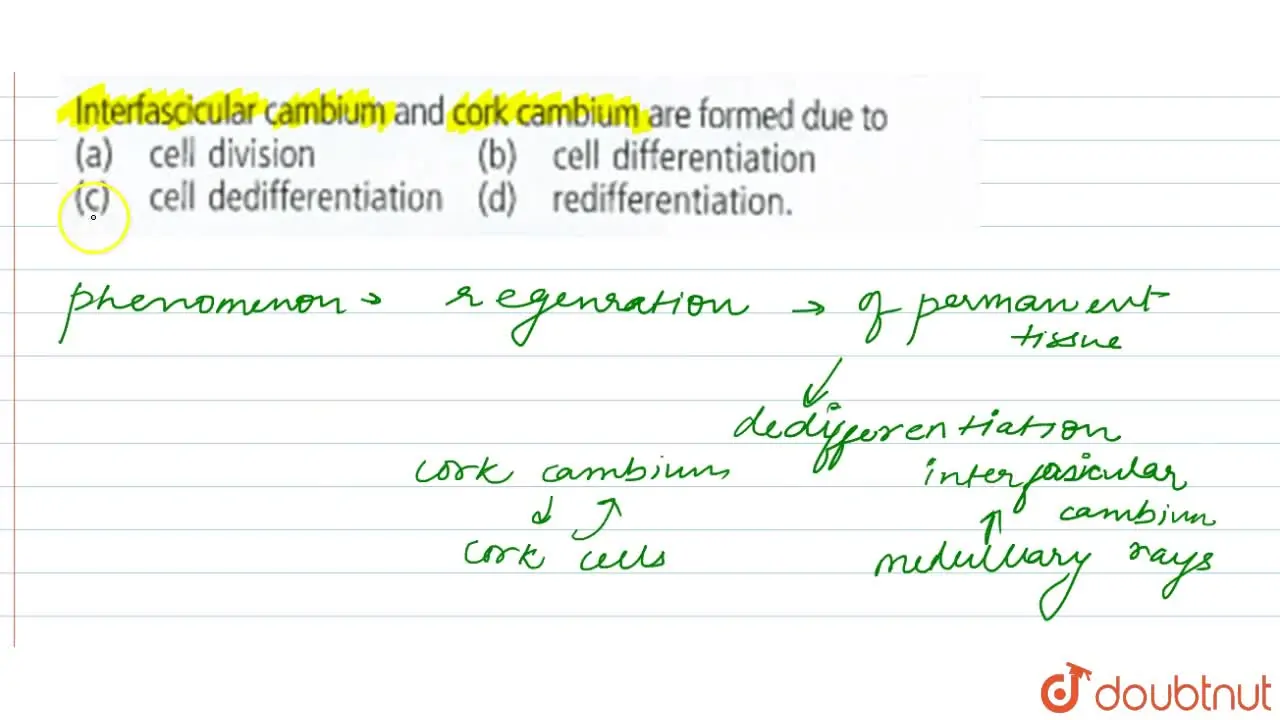 Interfascicular cambium and cork cambium are formed due to
(a) cell division (b) cell differentiation
(c) cell dedifferentiation (d) redifferentiation.
phenomenon → regenration → of permanent
tissue
dedifferentiation
cork cambium interfasicular
cambium
cork cells medullary rays
doubtnut